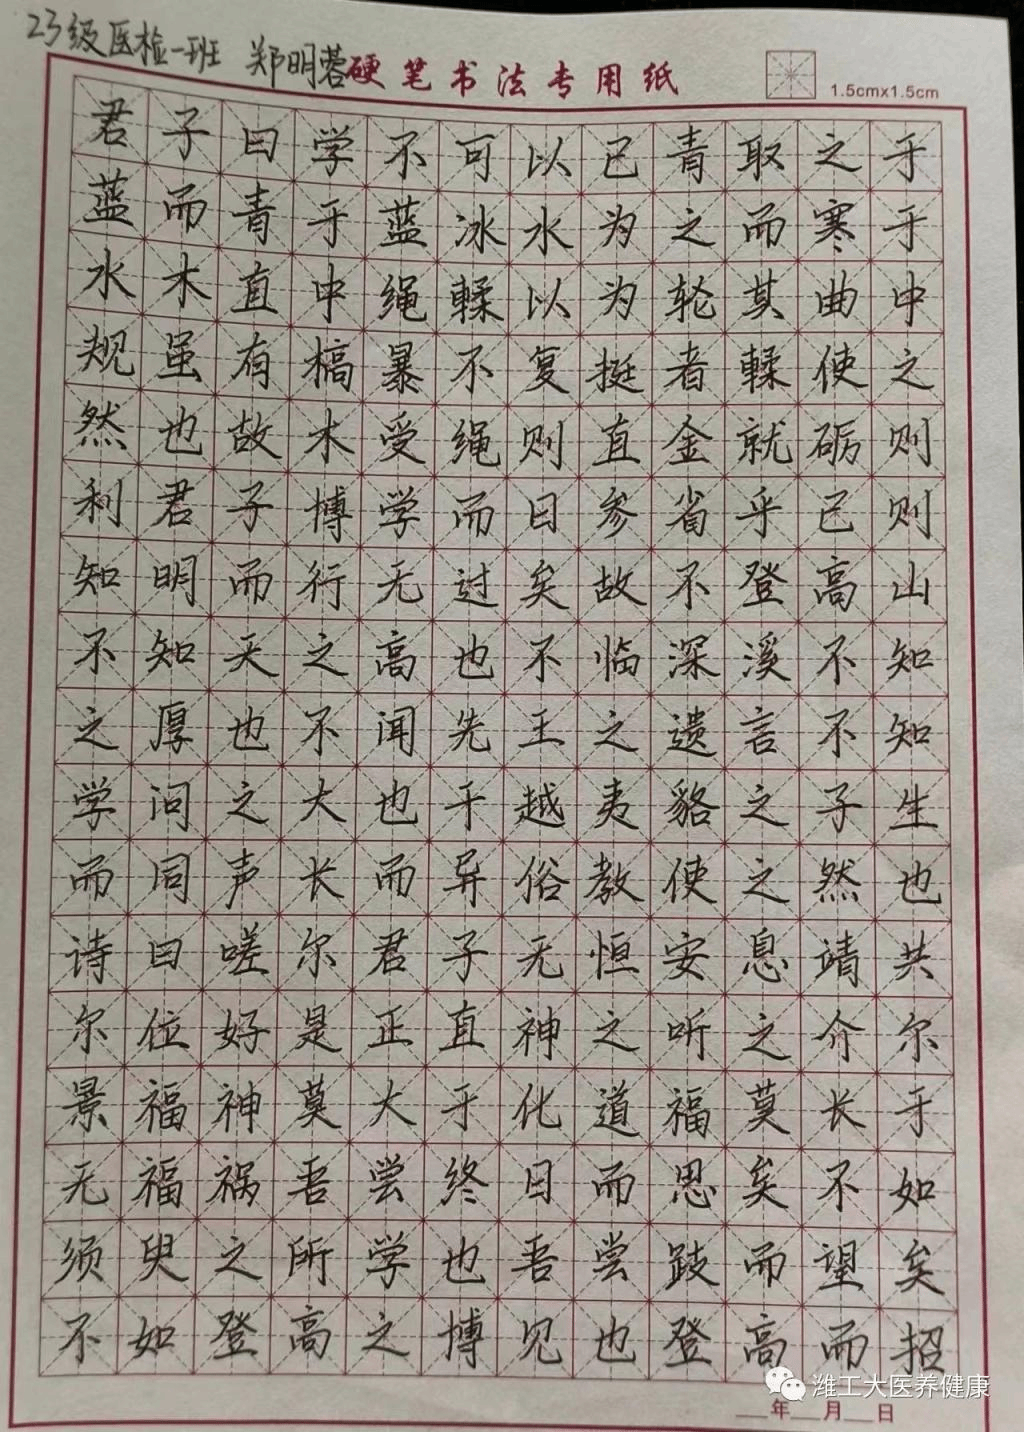 23级医检一班 郑明蓉
硬笔书法专用纸
1.5cmx1.5cm
君子曰学不可以已青取之于
蓝而青于蓝冰水为之而寒于
水木直中绳輮以为轮其曲中
规虽有槁暴不复挺者輮使之
然也故木受绳则直金就砺则
利君子博学而日参省乎己则
知明而行无过矣故不登高山
不知天之高也不临深溪不知
之厚也不闻先王之遗言不知
学问之大也干越夷貉之子生
而同声长而异俗教使之然也
诗曰嗟尔君子无恒安息靖共
尔位好是正直神之听之介尔
景福神莫大于化道福莫长于
无福祸吾尝终日而思矣不如
须臾之所学也吾尝跂而望矣
不如登高之博见也登高而招
潍工大医养健康
年 月 日